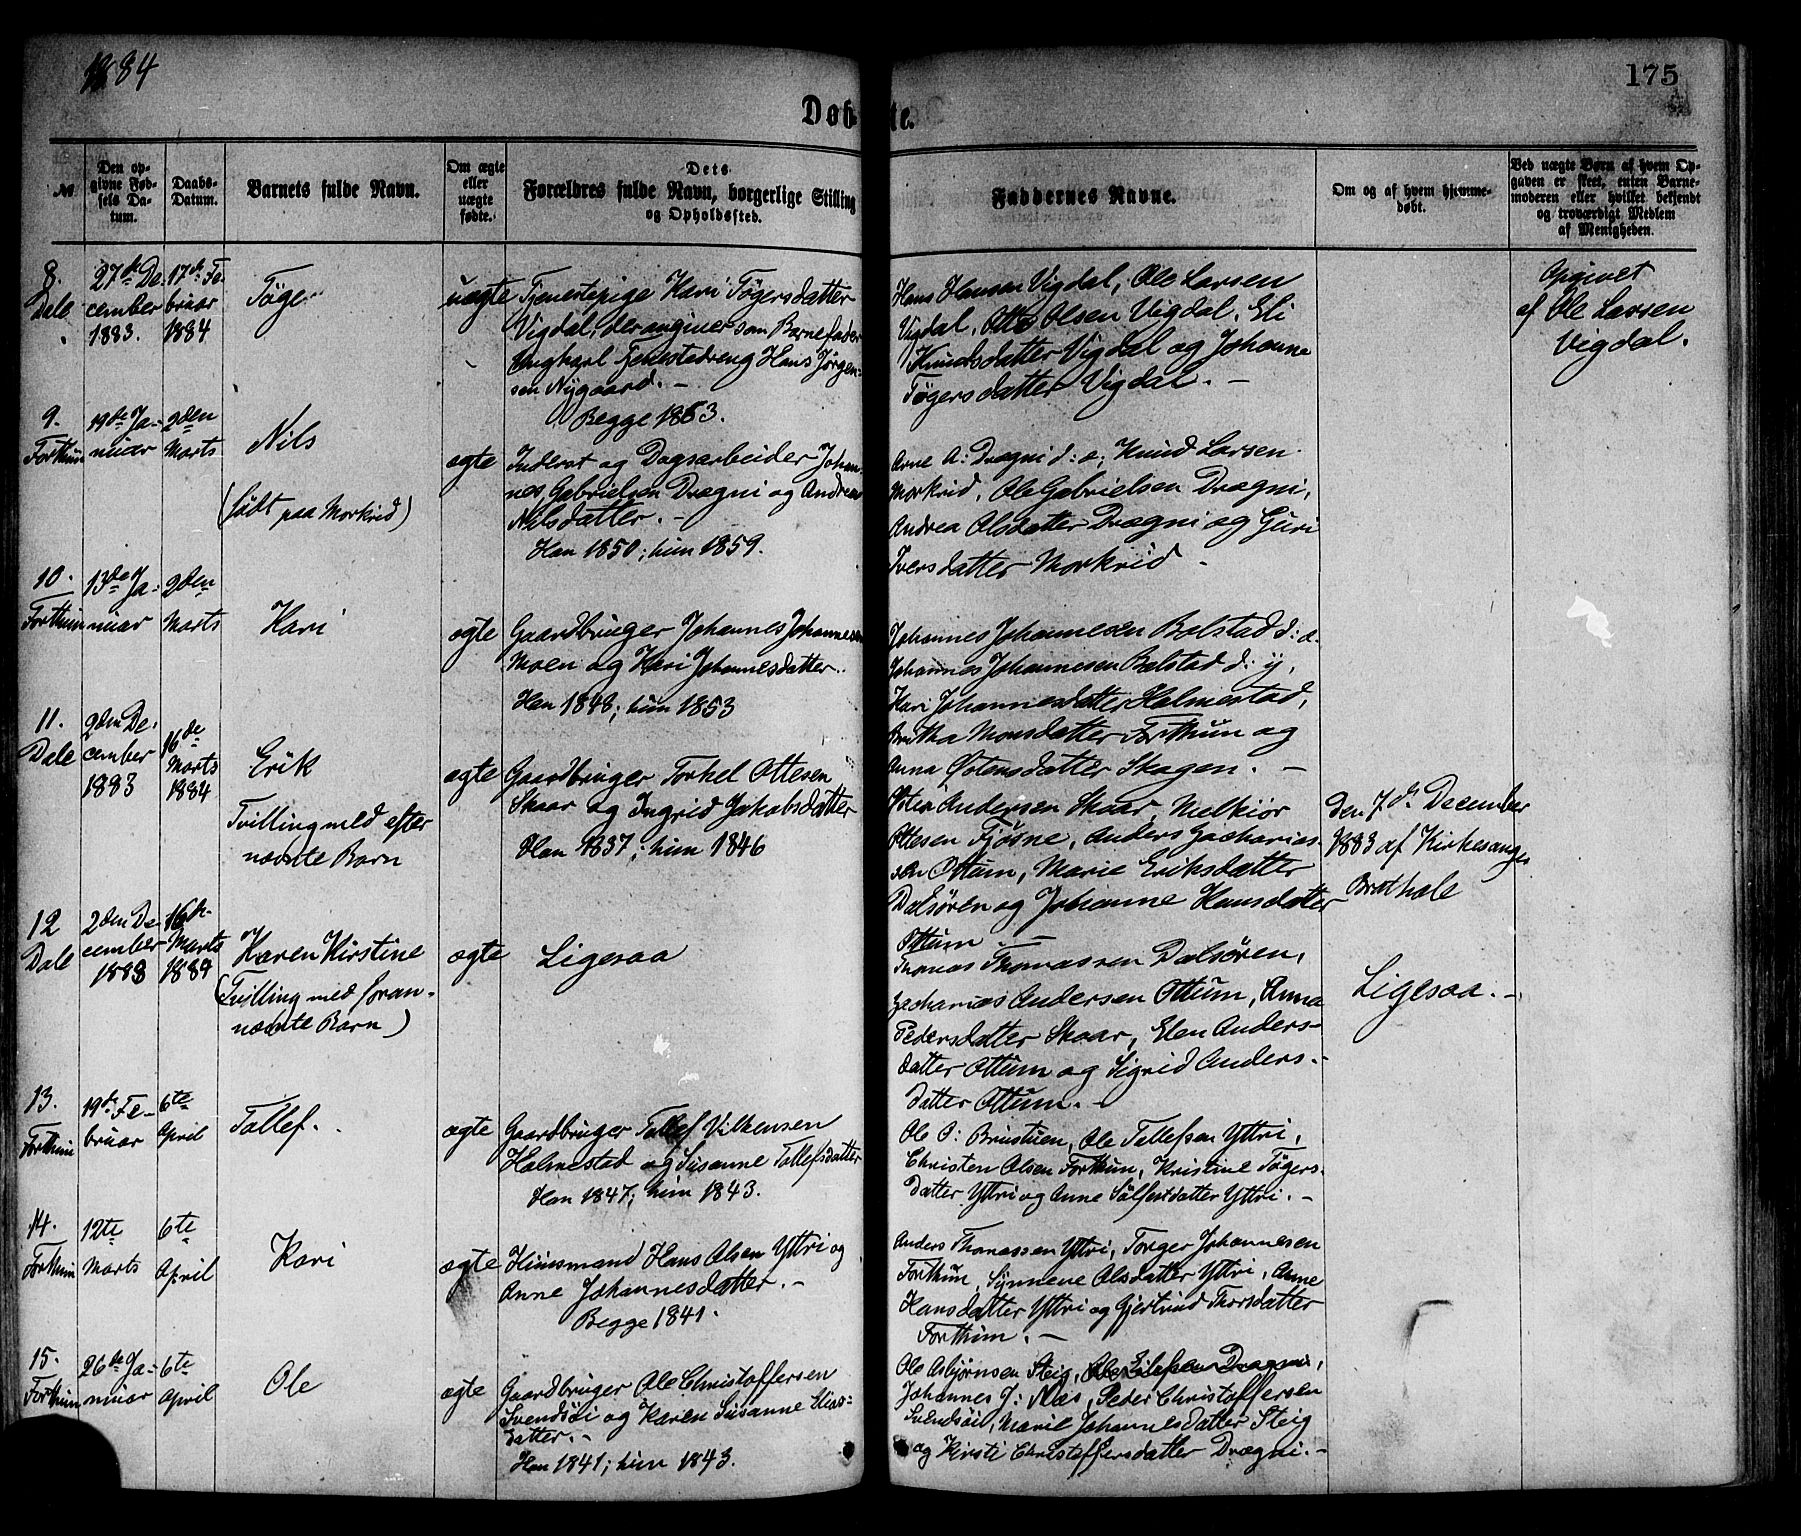 1884
175
Døbte.
№
Den opgivne Fødsels Datum.
Daabs-Datum.
Barnets fulde Navn.
Om ægte eller uægte fødte.
Dets Forældres fulde Navn, borgerlige Stilling og Opholdssted.
Faddernes Navne.
Om og af hvem hjemmedøbt.
Ved uægte Børn af hvem Opgaven er skeet, enten Barnemoderen eller hvilket bekjendt og troværdigt Medlem af Menigheden.
8. Dale
27de December 1883.
17de Februar 1884
Tøger
uægte
Tjenestepige Kari Tøgersdatter
Vigdal, der angiver som Barnefader
Ungkarl Tjenestedreng Hans Jørgen-
sen Nygaard. -
Begge 1863.
Hans Hansen Vigdal, Ole Larsen
Vigdal, Otto Olsen Vigdal, Eli
Knudsdatter Vigdal og Johanne
Tøgersdatter Vigdal. -
Opgivet
af Ole Larsen
Vigdal.
9. Forthun
19de Januar
2den Marts
Nils
(født paa Morkrid)
ægte
Inderst og Dagsarbeider Johan-
nes Gabrielsen Drægni og Andrea
Nilsdatter. -
Han 1850; hun 1859.
Arne A: Drægni d: æ; Knud Larsen
Morkrid, Ole Gabrielsen Drægni,
Andrea Olsdatter Drægni og Guri
Iversdatter Morkrid -
10. Forthun
13de Januar
2den Marts
Kari
ægte
Gaardbruger Johannes Johannesen
Moen og Kari Johannesdatter.
Han 1848; hun 1853
Johannes Johannesen Bolstad d: æ.
Johannes Johannesen Bolstad d: y,
Kari Johannesdatter Halmestad,
Britha Monsdatter Forthun og
Anna Østensdatter Skagen. -
11. Dale
2den December 1883
16de Marts 1884
Erik
Tvilling med efter
nævnte Barn
ægte
Gaardbruger Torkel Ottesen
Skaar og Ingrid Jakobsdatter
Han 1837; hun 1846
Andersen Skaar, Melkior
Ottesen Fjøsne, Anders Zacharias-
sen Ottum, Marie Eriksdatter
Dalsøren og Johanne Hansdatter
Ottum. -
Den 7de December
1883 af Kirkesanger
12 Dale
2den December 1883
16de Marts 1884
Karen Kirstine
(Tvilling med foran-
nævnte Barn)
ægte
Ligesaa
Thomas Thomassen Dalsøren,
Zacharias Andersen Ottum, Anna
Pedersdatter Skaar, Elen Anders-
datter Ottum og Sigrid Anders-
datter Ottum. -
Ligesaa. -
13. Forthun
19de Februar
6te April
Tollef.
ægte
Gaardbruger Tollef Vilhemsen
Halmestad og Susanne Tollefsdatter
Han 1847; hun 1843.
Ole O: Brustuen, Ole Tollefsen Yttri,
Christen Olsen Forthun, Kristine Tøgers-
datter Yttri og Anne Sølfestdatter Yttri. -
14. Forthun
12te Marts
6te April
Kari
ægte
Huusmand Hans Olsen Yttri og
Anne Johannesdatter. -
Begge 1841.
Anders Thomassen Yttri, Torger Johannesen
Forthun, Synneve Olsdatter Yttri, Anne
Hansdatter Yttri og Gjertrud Thorsdatter
Forthun. -
15. Forthun
26de Januar
6te April
Ole
ægte
Gaardbruger Ole Christoffersen
Svendsøi og Karen Susanne Elias-
datter. -
Han 1841; hun 1843.
Ole Asbjørnsen Steig, Ole Eilefsen Drægni,
Johannes J: Næs, Peder Christoffersen
Svendsøi, Marie Johannesdatter Steig
og Kirsti Christoffersdatter Drægni. -